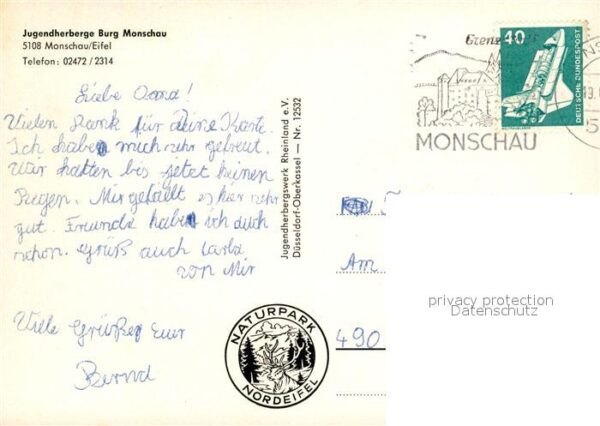 Jugendherberge Burg Monschau
5108 Monschau/Eifel
Telefon: 02472 / 2314
Liebe Oma!
Vielen Dank für Deine Karte.
Ich habe mich sehr gefreut.
Wir hatten bis jetzt keinen
Regen. Mir gefällt es hier sehr
gut. Freunde habe ich auch
schon. Grüß auch Carla
von Mir
Viele Grüße Euer
Bernd
Jugendherbergswerk Rheinland e.V.
Düsseldorf-Oberkassel — Nr. 12532
NATURPARK
NORDEIFEL
MONSCHAU
40
DEUTSCHE BUNDESPOST
Am
490
privacy protection
Datenschutz